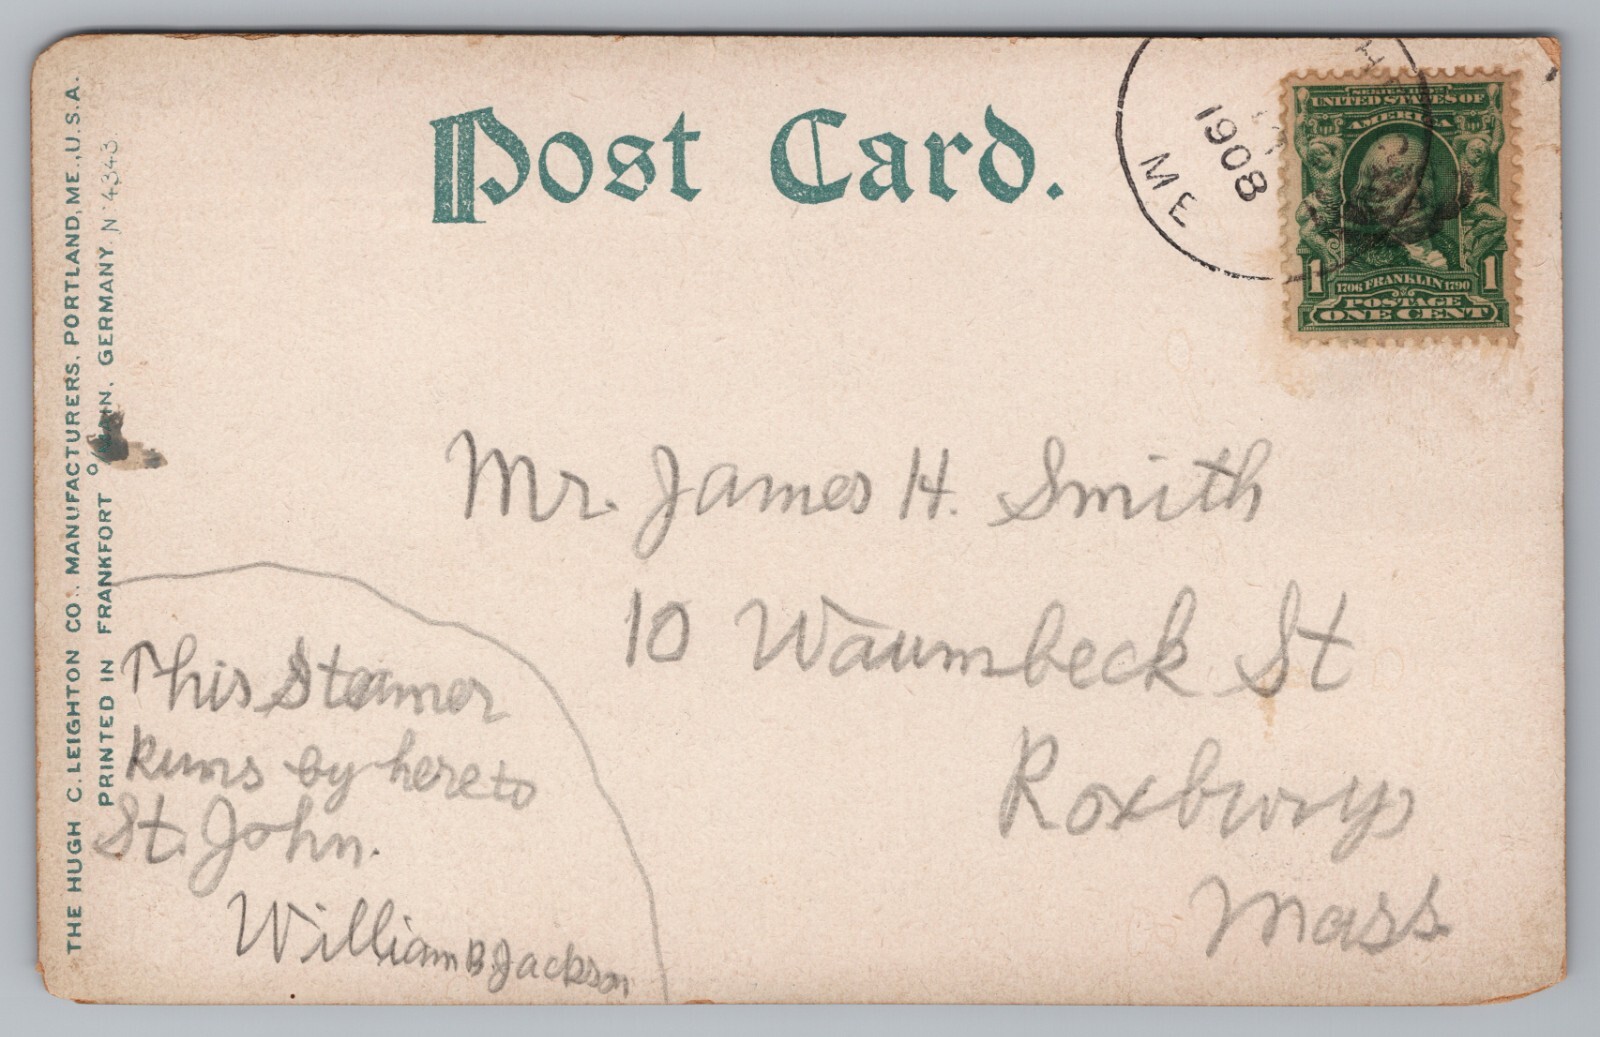 Post Card.
1908
ME
SERIES 1902
UNITED STATES OF
AMERICA
1 1706 FRANKLIN 1790 1
POSTAGE
ONE CENT
THE HUGH C. LEIGHTON CO., MANUFACTURERS, PORTLAND, ME., U.S.A.
PRINTED IN FRANKFORT GERMANY No 4343
Mr. James H. Smith
10 Waumbeck St
Roxbury
Mass
This Steamer
Runs by here to
St. John.
William B. Jackson